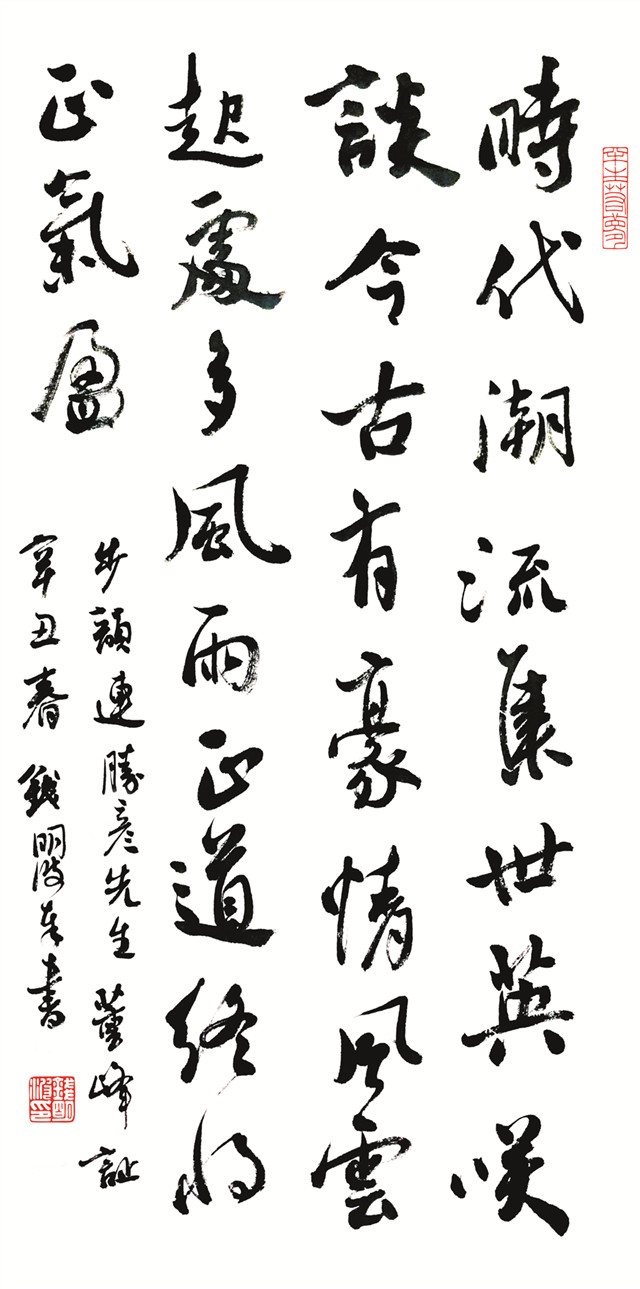 時代潮流集世英咲
談今古有豪情風雲
起處多風雨正道終將
正氣盈
步韻連勝彥先生 峰
辛丑春 錢明波奉書